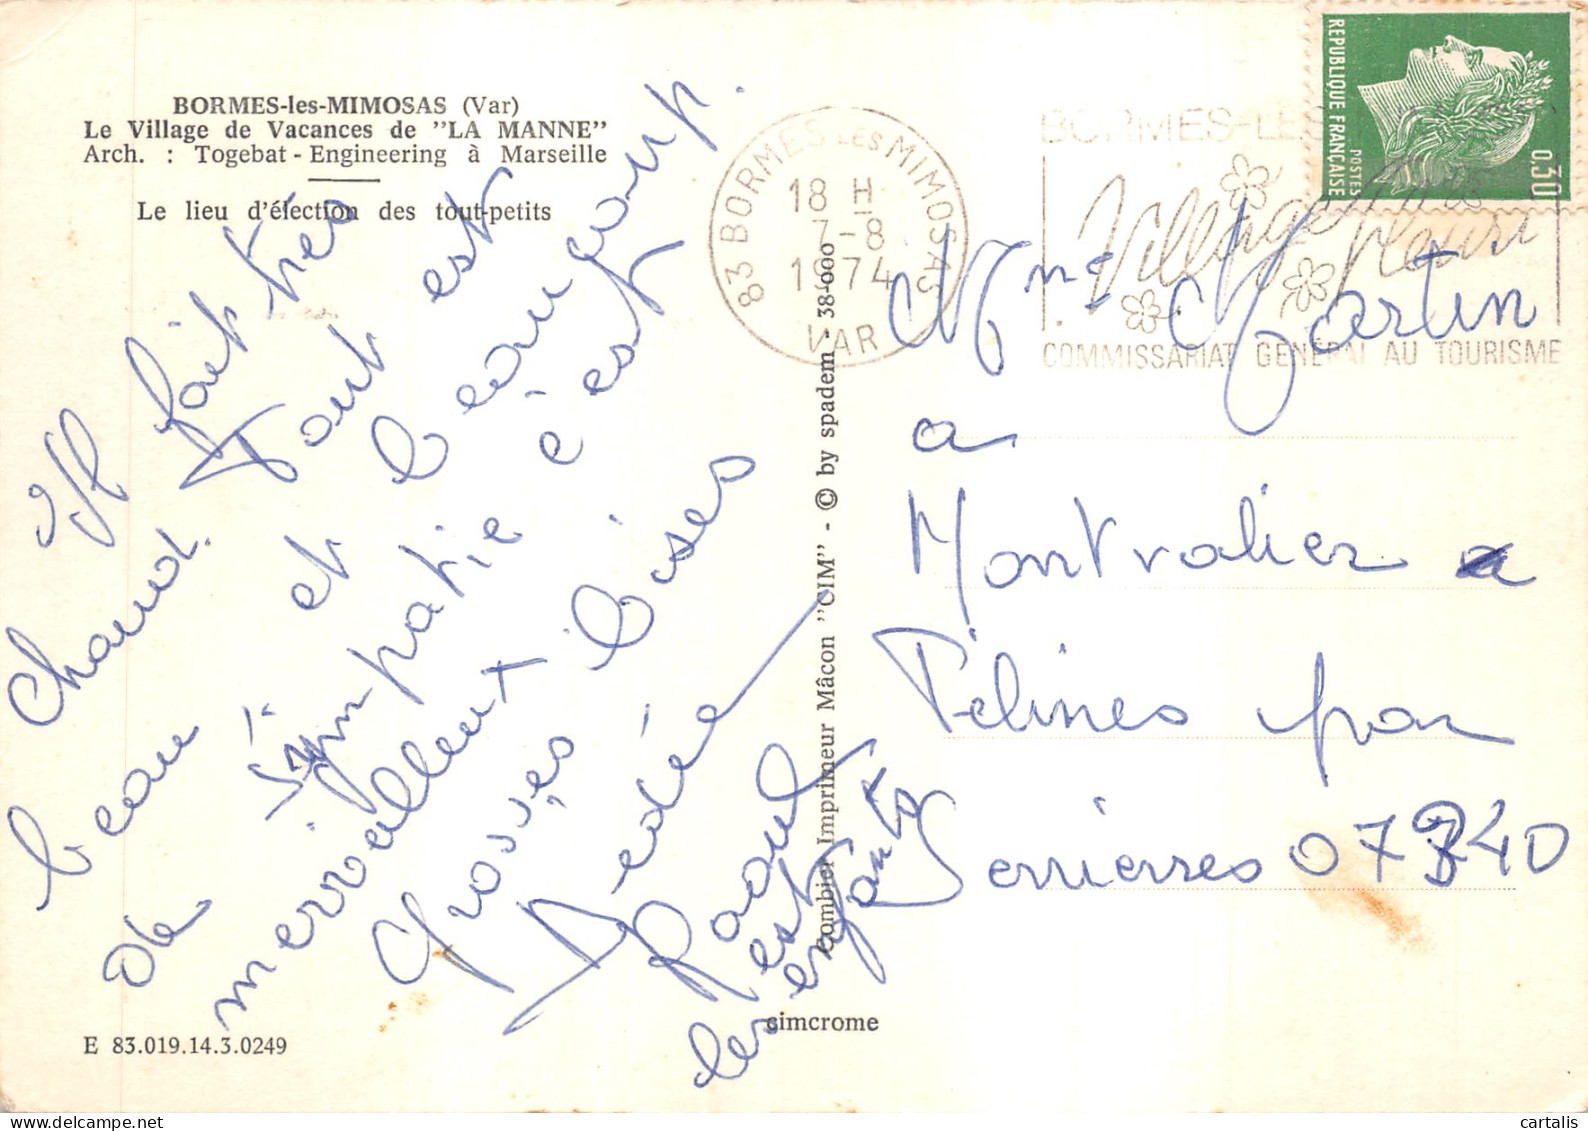 BORMES-les-MIMOSAS (Var)
Le Village de Vacances de "LA MANNE"
Arch. : Togebat - Engineering à Marseille
Le lieu d'élection des tout-petits
Il fait très
chaud. Tout est
beau et beaucoup
de sympatie c'est
merveilleux
Grosses bises
Dédée
Raoul
est
les enfants
E 83.019.14.3.0249
simcrome
Combier Imprimeur Mâcon "CIM" - © by spadem - 38-000
83 BORMES LES MIMOSAS
18 H
7-8
1974
VAR
BORMES-LES
Village fleuri
COMMISSARIAT GENERAL AU TOURISME
REPUBLIQUE FRANÇAISE
POSTES
0,30
Mme Martin
a
Montvalier a
Félines par
Serrierres 07340
© cartalis
www.delcampe.net